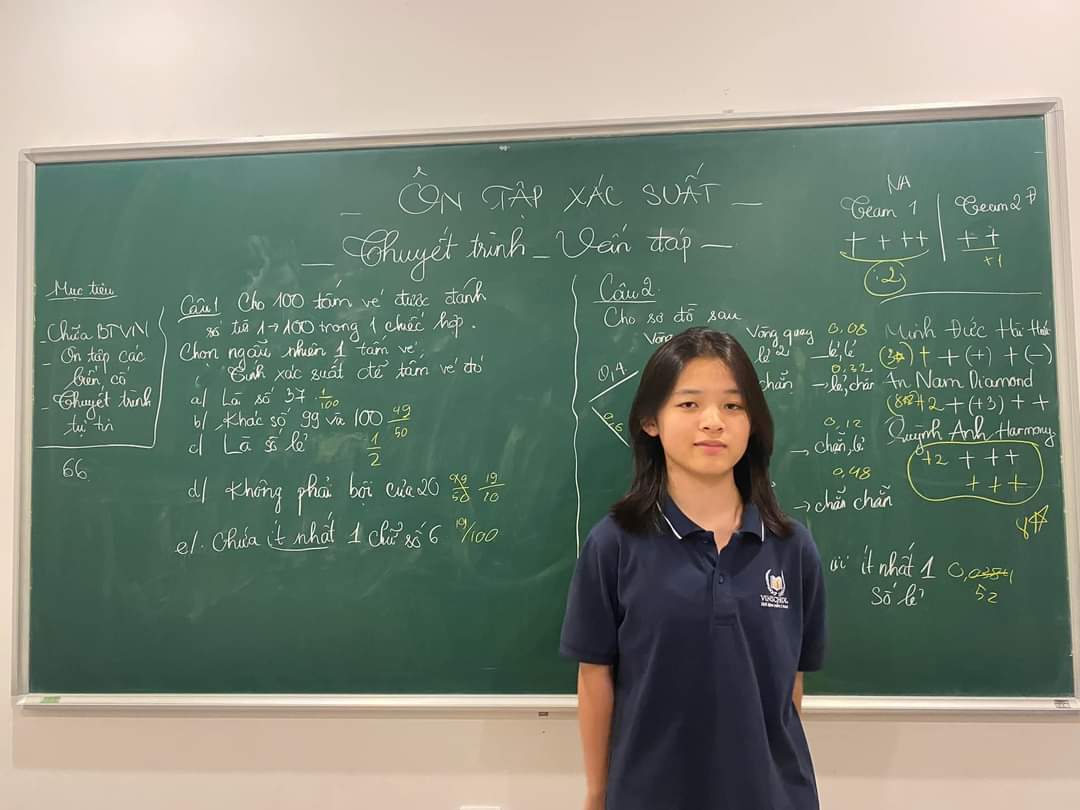 ÔN TẬP XÁC SUẤT
Thuyết trình _ Vấn đáp
Mục tiêu
- Chữa BTVN
- Ôn tập các
biến cố
- Thuyết trình
tự tin
66
Câu 1 Cho 100 tấm vé được đánh
số từ 1→100 trong 1 chiếc hộp.
Chọn ngẫu nhiên 1 tấm vé.
Tính xác suất để tấm vé đó
a/ Là số 37 1/100
b/ Khác số 99 và 100 49/50
c/ Là số lẻ 1/2
d/ Không phải bội của 20 19/20
e/. Chứa ít nhất 1 chữ số 6 19/100
Câu 2.
Cho sơ đồ sau
Vòng quay 2
0,4
0,6
lẻ
chẵn
0,08
→ lẻ, lẻ
0,32
→ lẻ, chẵn
0,12
→ chẵn, lẻ
0,48
→ chẵn chẵn
ít nhất 1
số lẻ
0,52
NA
Team 1
+ + ++
:2
Team 2
+ +
+1
Minh Đức Hải
+ + (+) + (-)
An Nam Diamond
+2 + (+3) + +
Quỳnh Anh Harmony
+2 + + +
+ + +
8☆
VINSCHOOL